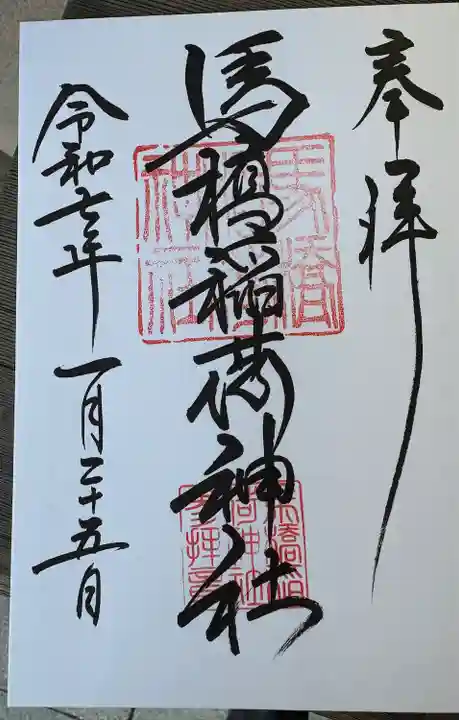 奉拝
馬橋稲荷神社
令和七年 一月二十五日
馬橋
神社
馬橋稲
荷神社